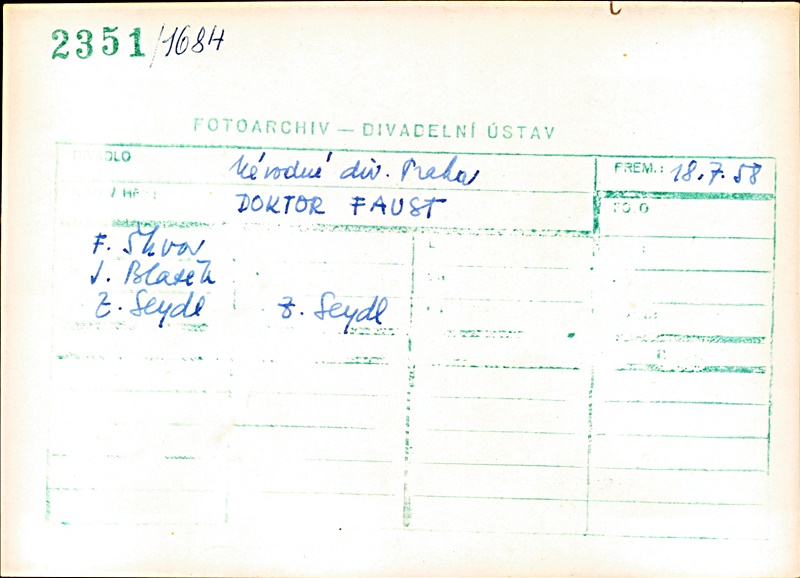 2351/1684
FOTOARCHIV — DIVADELNÍ ÚSTAV
DIVADLO Národné div. Praha PREM.: 18.7.58
DOKTOR FAUST FOTO
F. Škvor
J. Blažek
Z. Seydl Z. Seydl